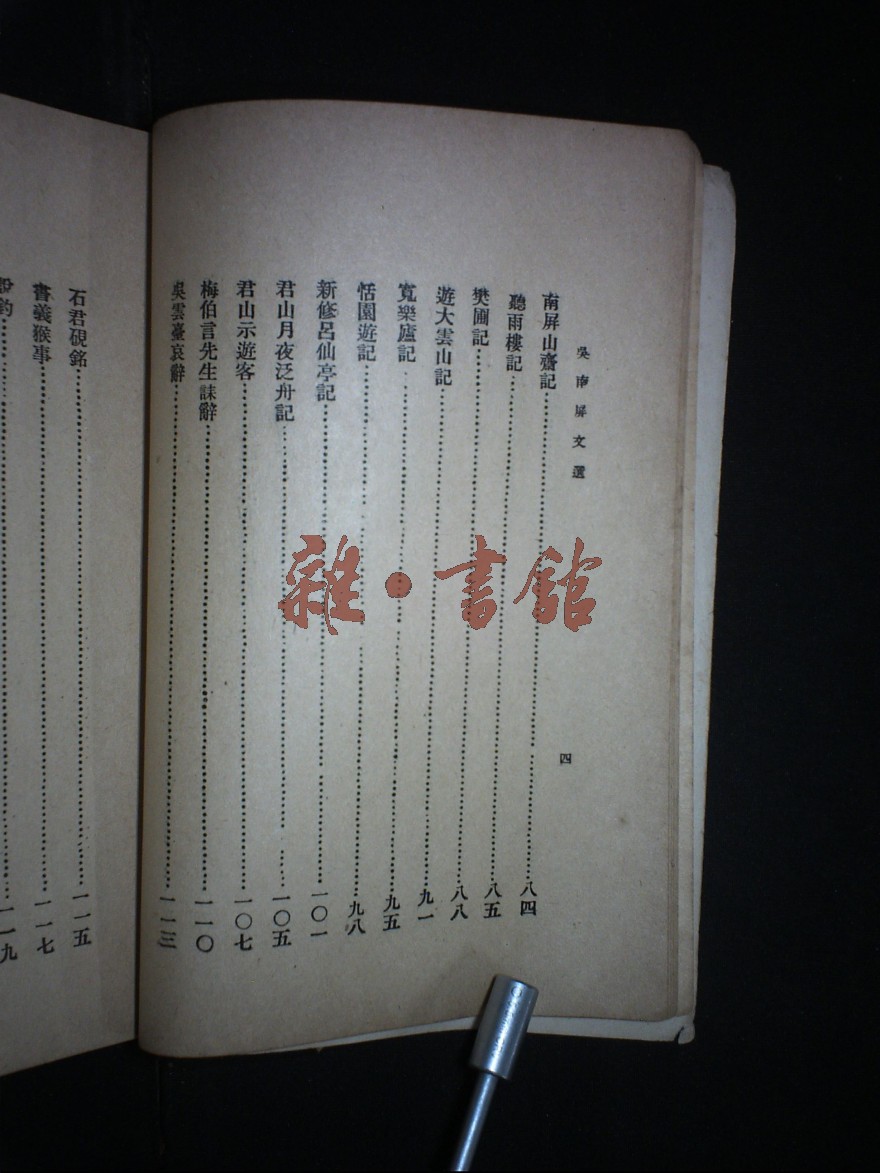 吳南屏文選
四
南屏山齋記……八四
聽雨樓記……八五
樊圃記……八八
遊大雲山記……九一
寬樂廬記……九五
恬園遊記……九八
新修呂仙亭記……一〇一
君山月夜泛舟記……一〇五
君山示遊客……一〇七
梅伯言先生誄辭……一一〇
吳雲臺哀辭……一一三
石君硯銘……一一五
書義猴事……一一七
說釣……一一九
雜·書館